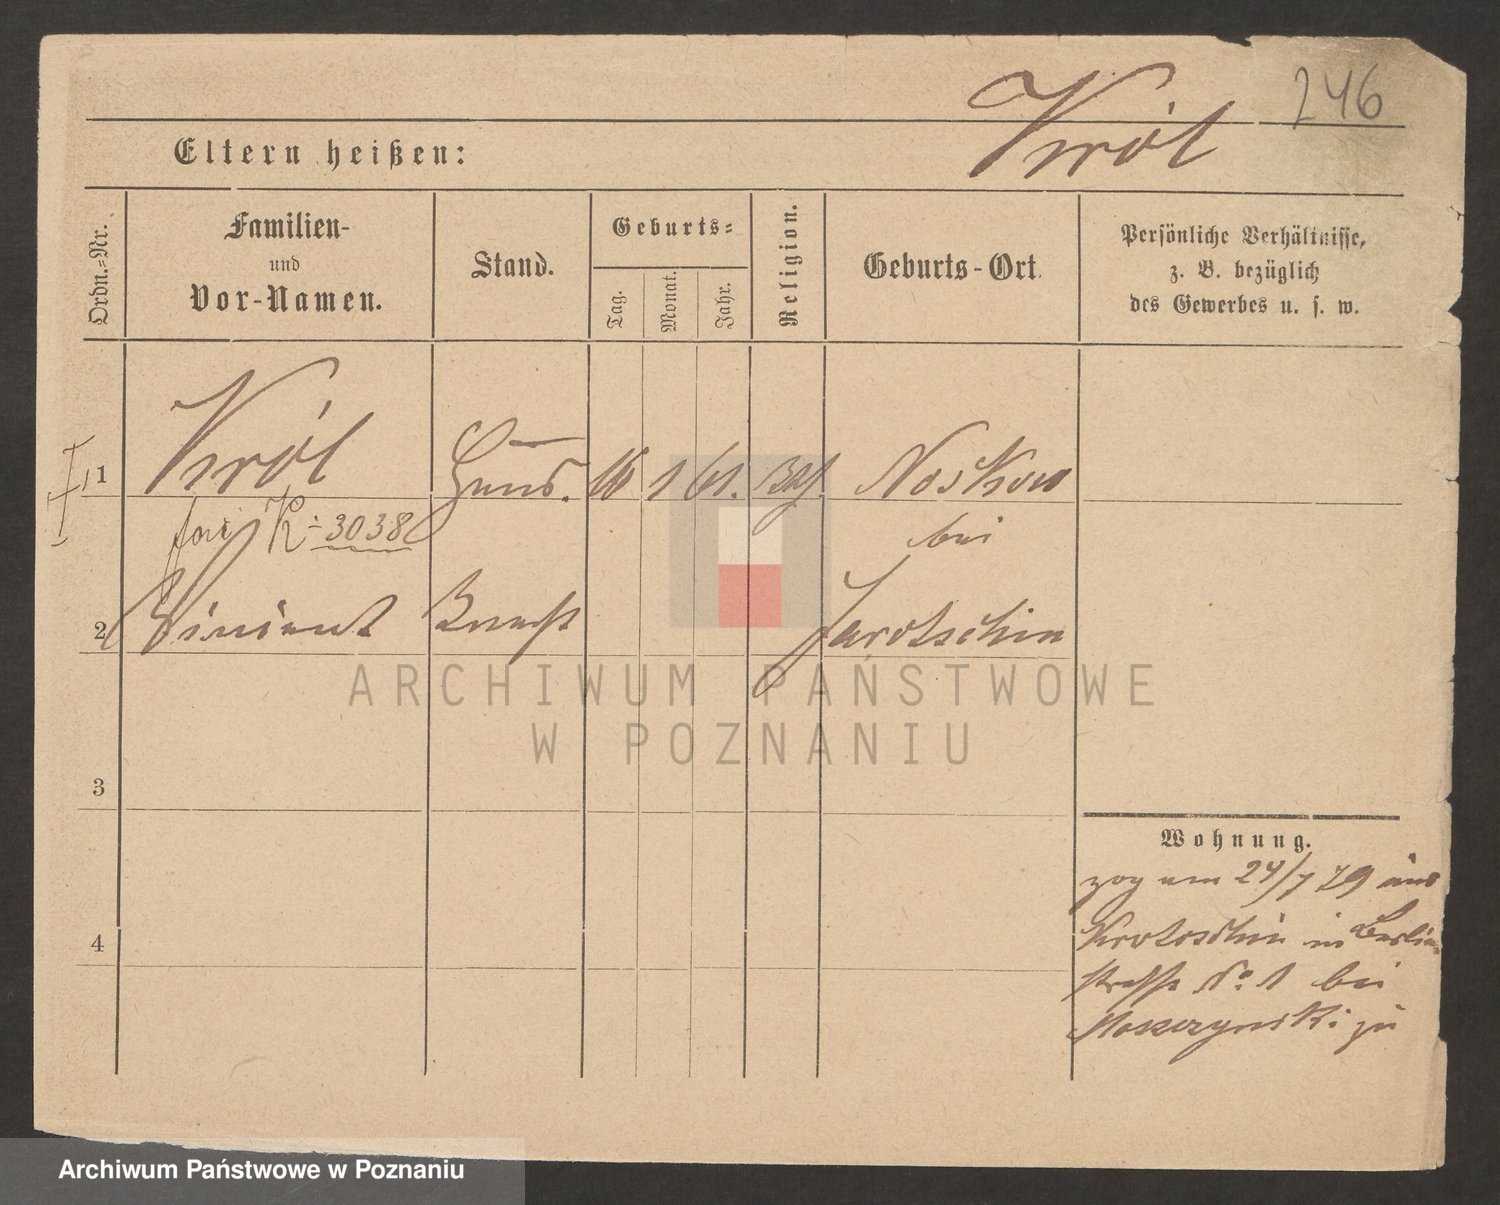 246
Król
Eltern heißen:
Ordn.-Nr.
Familien-
und
Vor-Namen.
Stand.
Geburts-
Tag.
Monat.
Jahr.
Religion.
Geburts-Ort.
Persönliche Verhältnisse,
z. B. bezüglich
des Gewerbes u. s. w.
1
Król
16 1 61.
Noskow
K-3038
bei
2
Vincent
Knecht
Jarotschin
ARCHIWUM PAŃSTWOWE
W POZNANIU
3
Wohnung.
zog am 24/7 79 aus
Krotoschin in Berlin
4
strasse No. 1 bei
zu
Archiwum Państwowe w Poznaniu